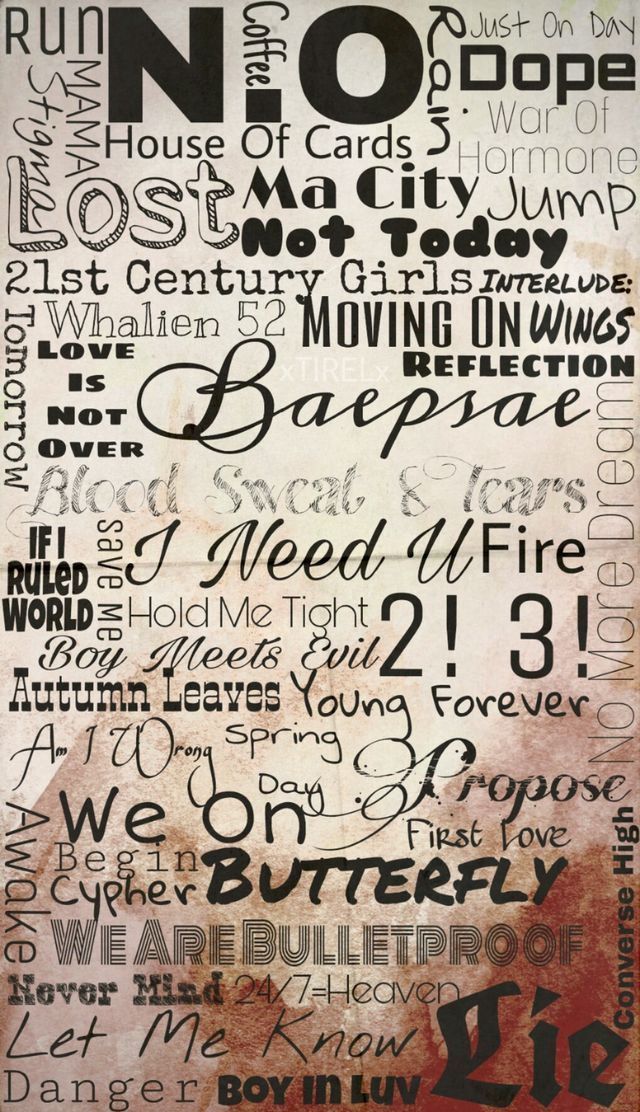 Run
N.O
Coffee
Rain
Just On Day
Dope
MAMA
Stigma
War Of
Hormone
House Of Cards
Lost
Ma City
Jump
Not Today
21st Century Girls
Interlude:
Wings
Tomorrow
Whalien 52
Moving On
Love
Is
Not
Over
xTIRELx
Reflection
Baepsae
No More Dream
Blood Sweat & Tears
If I
Ruled
World
save me
I Need U
Fire
Hold Me Tight
2! 3!
Boy Meets Evil
Autumn Leaves
Young Forever
Am I Wrong
Spring
Day
Propose
Awake
We On
First Love
Converse High
Begin
Cypher
Butterfly
We Are Bulletproof
Never Mind
24/7=Heaven
Lie
Let Me Know
Danger
Boy In Luv